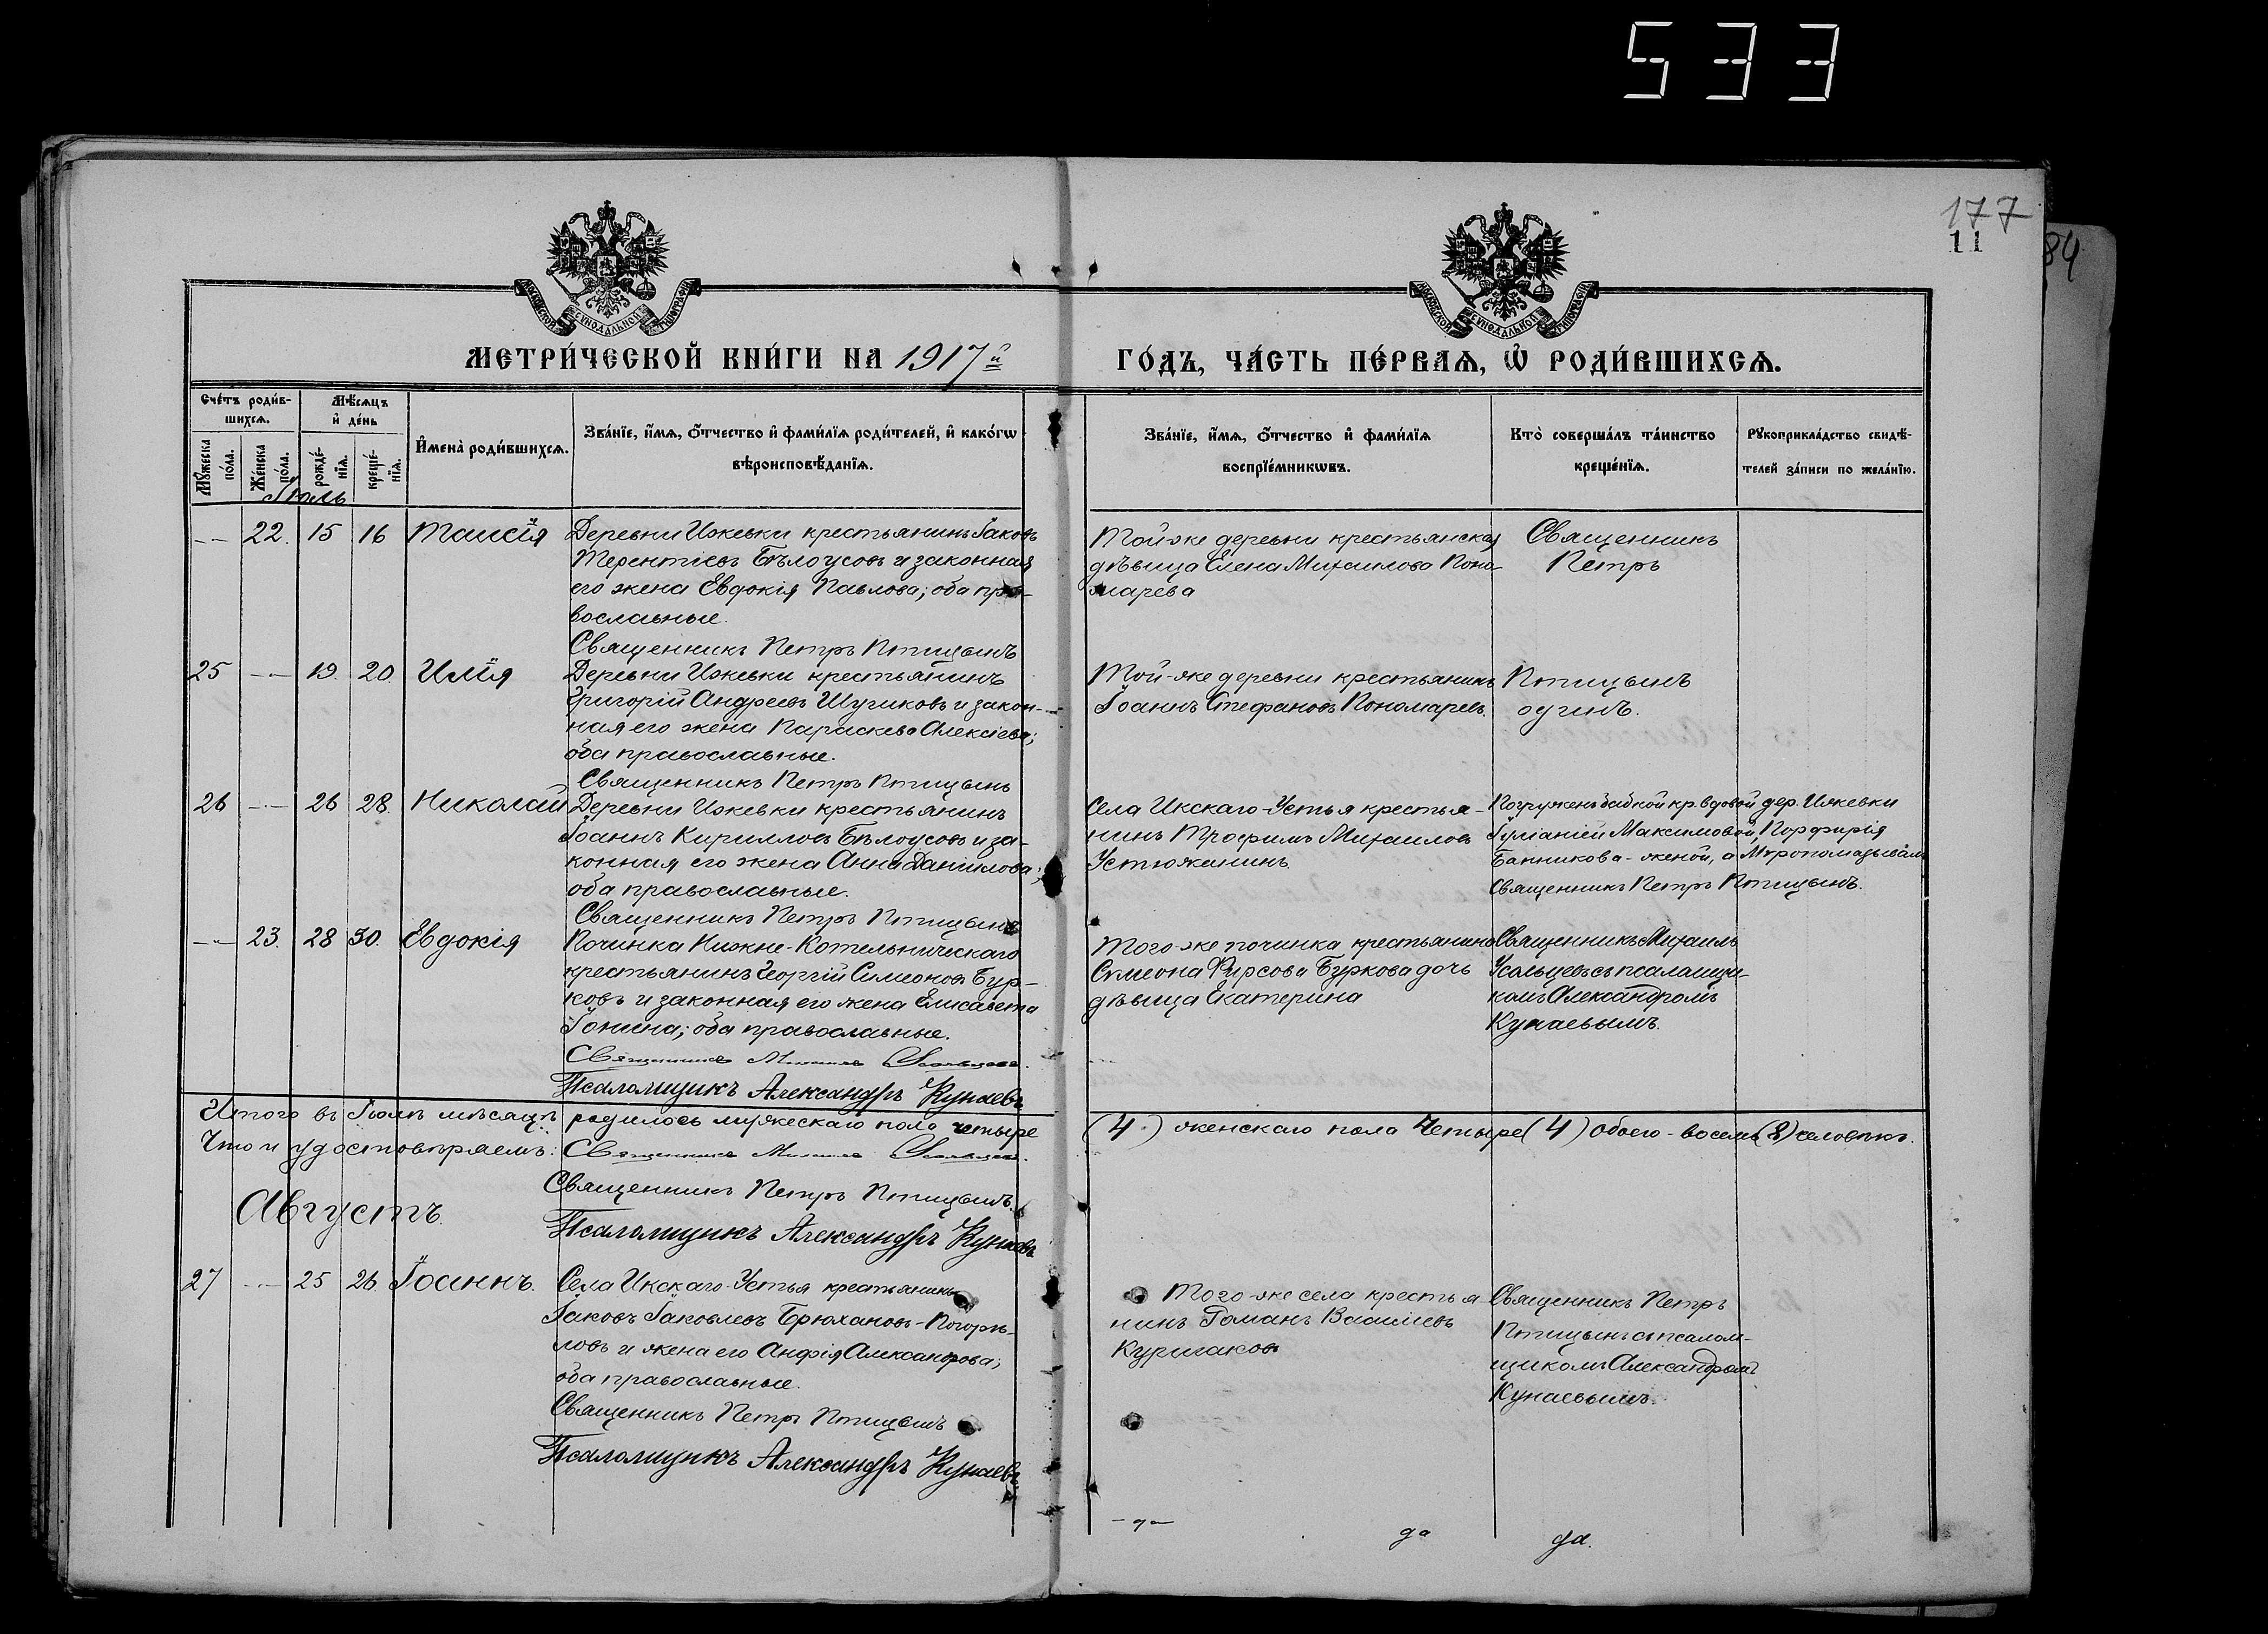 533
177
11
84
МЕТРИ́ЧЕСКОЙ КНИ́ГИ НА 1917й
ГО́ДЪ, ЧА́СТЬ ПЕ́РВАѦ, Ѡ҆ РОДИ́ВШИХСѦ.
Сче́тъ роди́в-
шихсѧ.
Мꙋ́жеска
по́ла.
Же́нска
по́ла.
Мѣ́сѧцъ
и҆ де́нь
рожде́-
нїѧ.
креще́-
нїѧ.
И҆мена̀ роди́вшихсѧ.
Зва́нїе, и҆́мѧ, ѻ҆́тчество и҆ фами́лїѧ роди́телей, и҆ како́гѡ
вѣроисповѣ́данїѧ.
Зва́нїе, и҆́мѧ, ѻ҆́тчество и҆ фами́лїѧ
воспрїе́мникѡвъ.
Кто̀ соверша́лъ та́инство
креще́нїѧ.
Рꙋкоприкла́дство свидѣ́-
телей за́писи по жела́нїю.
Іюль
— 22. 15 16 Таисія
Деревни Ижевки крестьянинъ Іаковъ
Терентіевъ Бѣлоусовъ и законная
его жена Евдокія Павлова; оба пра-
вославные.
Священникъ Петръ Птицынъ
Той же деревни крестьянская
дѣвица Елена Михаилова Поно-
марева
Священникъ
Петръ
25 — 19. 20 Илія
Деревни Ижевки крестьянинъ
Григорій Андреевъ Шугиковъ и закон-
ная его жена Параскева Алексіева;
оба православные.
Священникъ Петръ Птицынъ
Той-же деревни крестьянинъ
Іоаннъ Стефановъ Пономаревъ.
Птицынъ
одинъ.
26 — 26 28. Николай
Деревни Ижевки крестьянинъ
Іоаннъ Кирилловъ Бѣлоусовъ и за-
конная его жена Анна Даниилова;
оба православные.
Священникъ Петръ Птицынъ
Села Икскаго-Устья крестья-
нинъ Трофимъ Михаиловъ
Устюжанинъ.
Погруженъ бабкой кр. вдовой дер. Ижевки
Іуліаніей Максимовой, Порфирія
Банникова-женой, а Мѵропомазывалъ
Священникъ Петръ Птицынъ.
— 23. 28 30. Евдокія
Починка Нижне-Котельническаго
крестьянинъ Георгій Симеоновъ Бур-
ковъ и законная его жена Елисавета
Іонина; оба православные.
Священникъ Михаилъ Усольцевъ.
Псаломщикъ Александръ Кунаевъ
Того-же починка крестьянина
Симеона Фирсова Буркова дочь
дѣвица Екатерина
Священникъ Михаилъ
Усольцевъ съ псаломщи-
комъ Александромъ
Кунаевымъ.
Итого въ Іюлѣ мѣсяцѣ родилось мужескаго пола четыре (4) женскаго пола Четыре (4) Обоего-восемь (8) человѣкъ.
Что и удостовѣряемъ: Священникъ Михаилъ Усольцевъ.
Священникъ Петръ Птицынъ.
Августъ.
Псаломщикъ Александръ Кунаевъ
27 — 25 26 Іоаннъ.
Села Икскаго-Устья крестьянинъ
Іаковъ Іаковлевъ Брюхановъ-Погорѣ-
ловъ и жена его Анфія Александрова;
оба православные.
Священникъ Петръ Птицынъ
Псаломщикъ Александръ Кунаевъ
Того-же села крестья-
нинъ Романъ Василіевъ
Священникъ Петръ
Птицынъ съ псалом-
щикомъ Александромъ
Кунаевымъ.
да
да